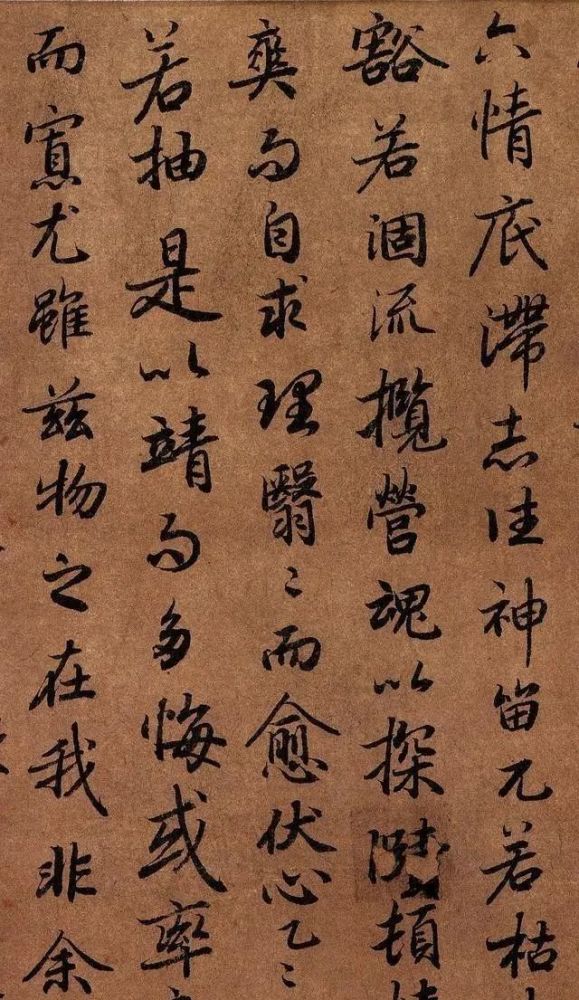 六情底滯志往神留兀若枯
豁若涸流攬營魂以探賾頓
爽而自求理翳〻而愈伏心乙〻
若抽是以靖而多悔或率
而寡尤雖茲物之在我非余